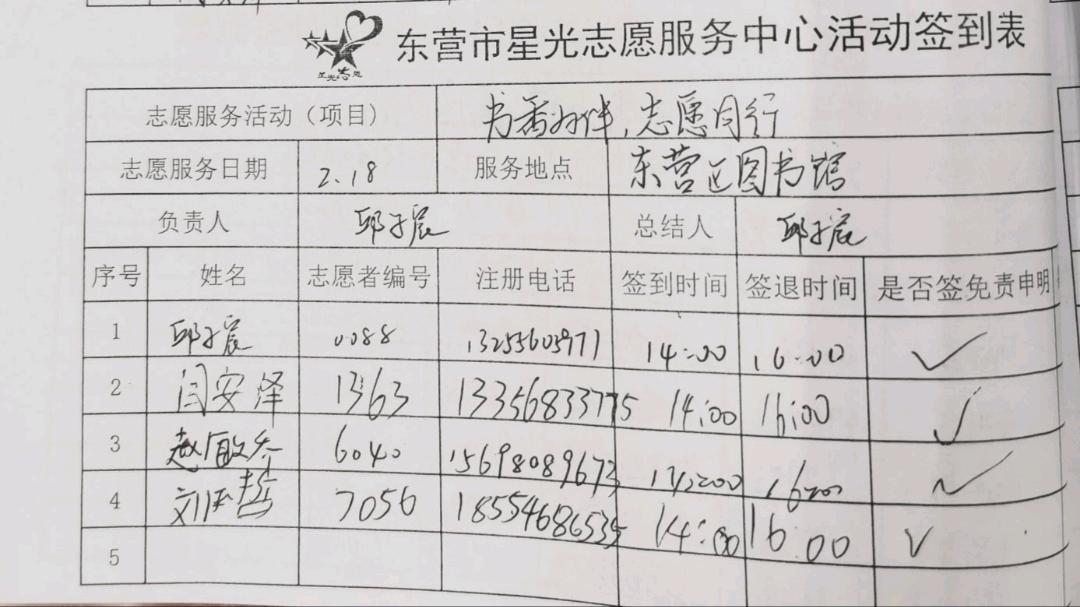 星光志愿
东营市星光志愿服务中心活动签到表
志愿服务活动（项目） 书香为伴，志愿同行
志愿服务日期 2.18 服务地点 东营区图书馆
负责人 邱子宸 总结人 邱子宸
序号 姓名 志愿者编号 注册电话 签到时间 签退时间 是否签免责申明
1 邱子宸 0088 13255605971 14:00 16:00 ✓
2 闫安泽 1363 13356833775 14:00 16:00 ✓
3 赵 6040 15698089673 14:00 16:00 ✓
4 刘 哲 7056 18554686535 14:00 16:00 ✓
5